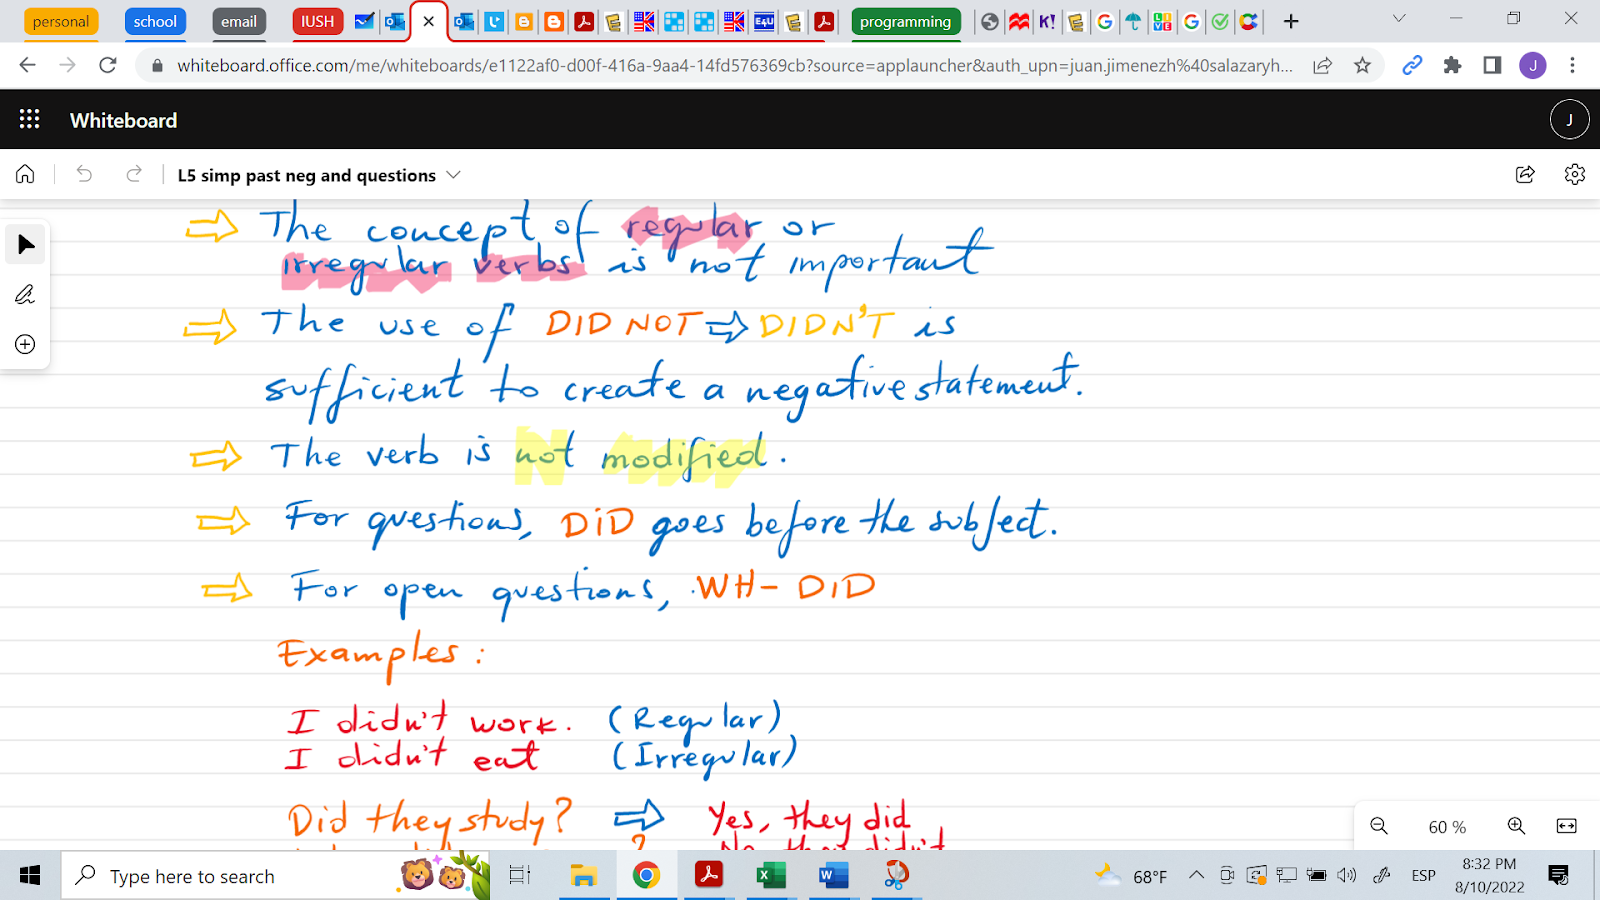 personal school email IUSH programming
whiteboard.office.com/me/whiteboards/e1122af0-d00f-416a-9aa4-14fd576369cb?source=applauncher&auth_upn=juan.jimenezh%40salazaryh... J
Whiteboard J
L5 simp past neg and questions
The concept of regular or
irregular verbs is not important
The use of DID NOT ⇨ DIDN'T is
sufficient to create a negative statement.
The verb is not modified.
For questions, DID goes before the subject.
For open questions, WH- DID
Examples:
I didn't work. (Regular)
I didn't eat (Irregular)
Did they study? ⇨ Yes, they did
No they didn't
60 %
Type here to search
68°F ESP
8:32 PM
8/10/2022